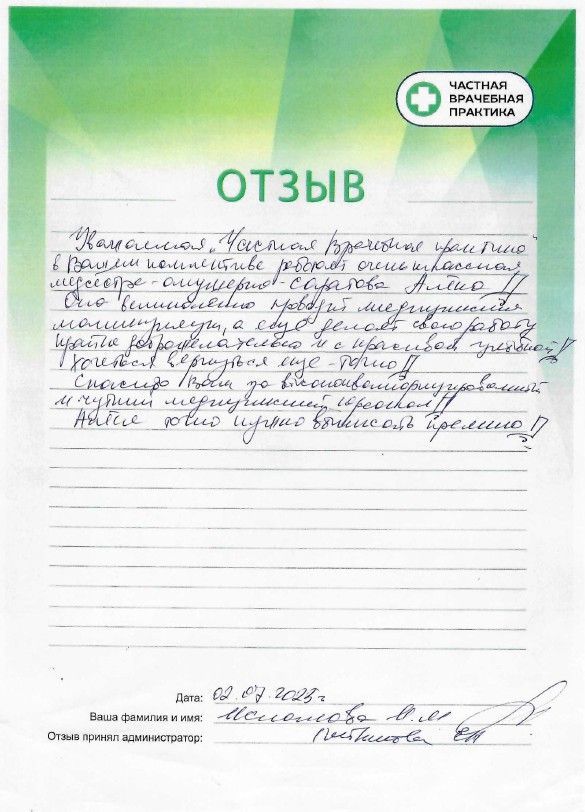 ЧАСТНАЯ
ВРАЧЕБНАЯ
ПРАКТИКА
ОТЗЫВ
Уважаемая "Частная врачебная практика"
в Вашем коллективе работает очень классная
медсестра-акушерка - Саратова Алёна!!
Она великолепно проводит медицинские
манипуляции, а еще делает свою работу
крайне доброжелательно и с красивой улыбкой!!
Хочется вернуться еще - точно!!
Спасибо Вам за высококвалифицированный
и чуткий медицинский персонал!!
Алёне точно нужно выписать премию!!
Дата: 02.07.2025г
Ваша фамилия и имя: И.М
Отзыв принял администратор: